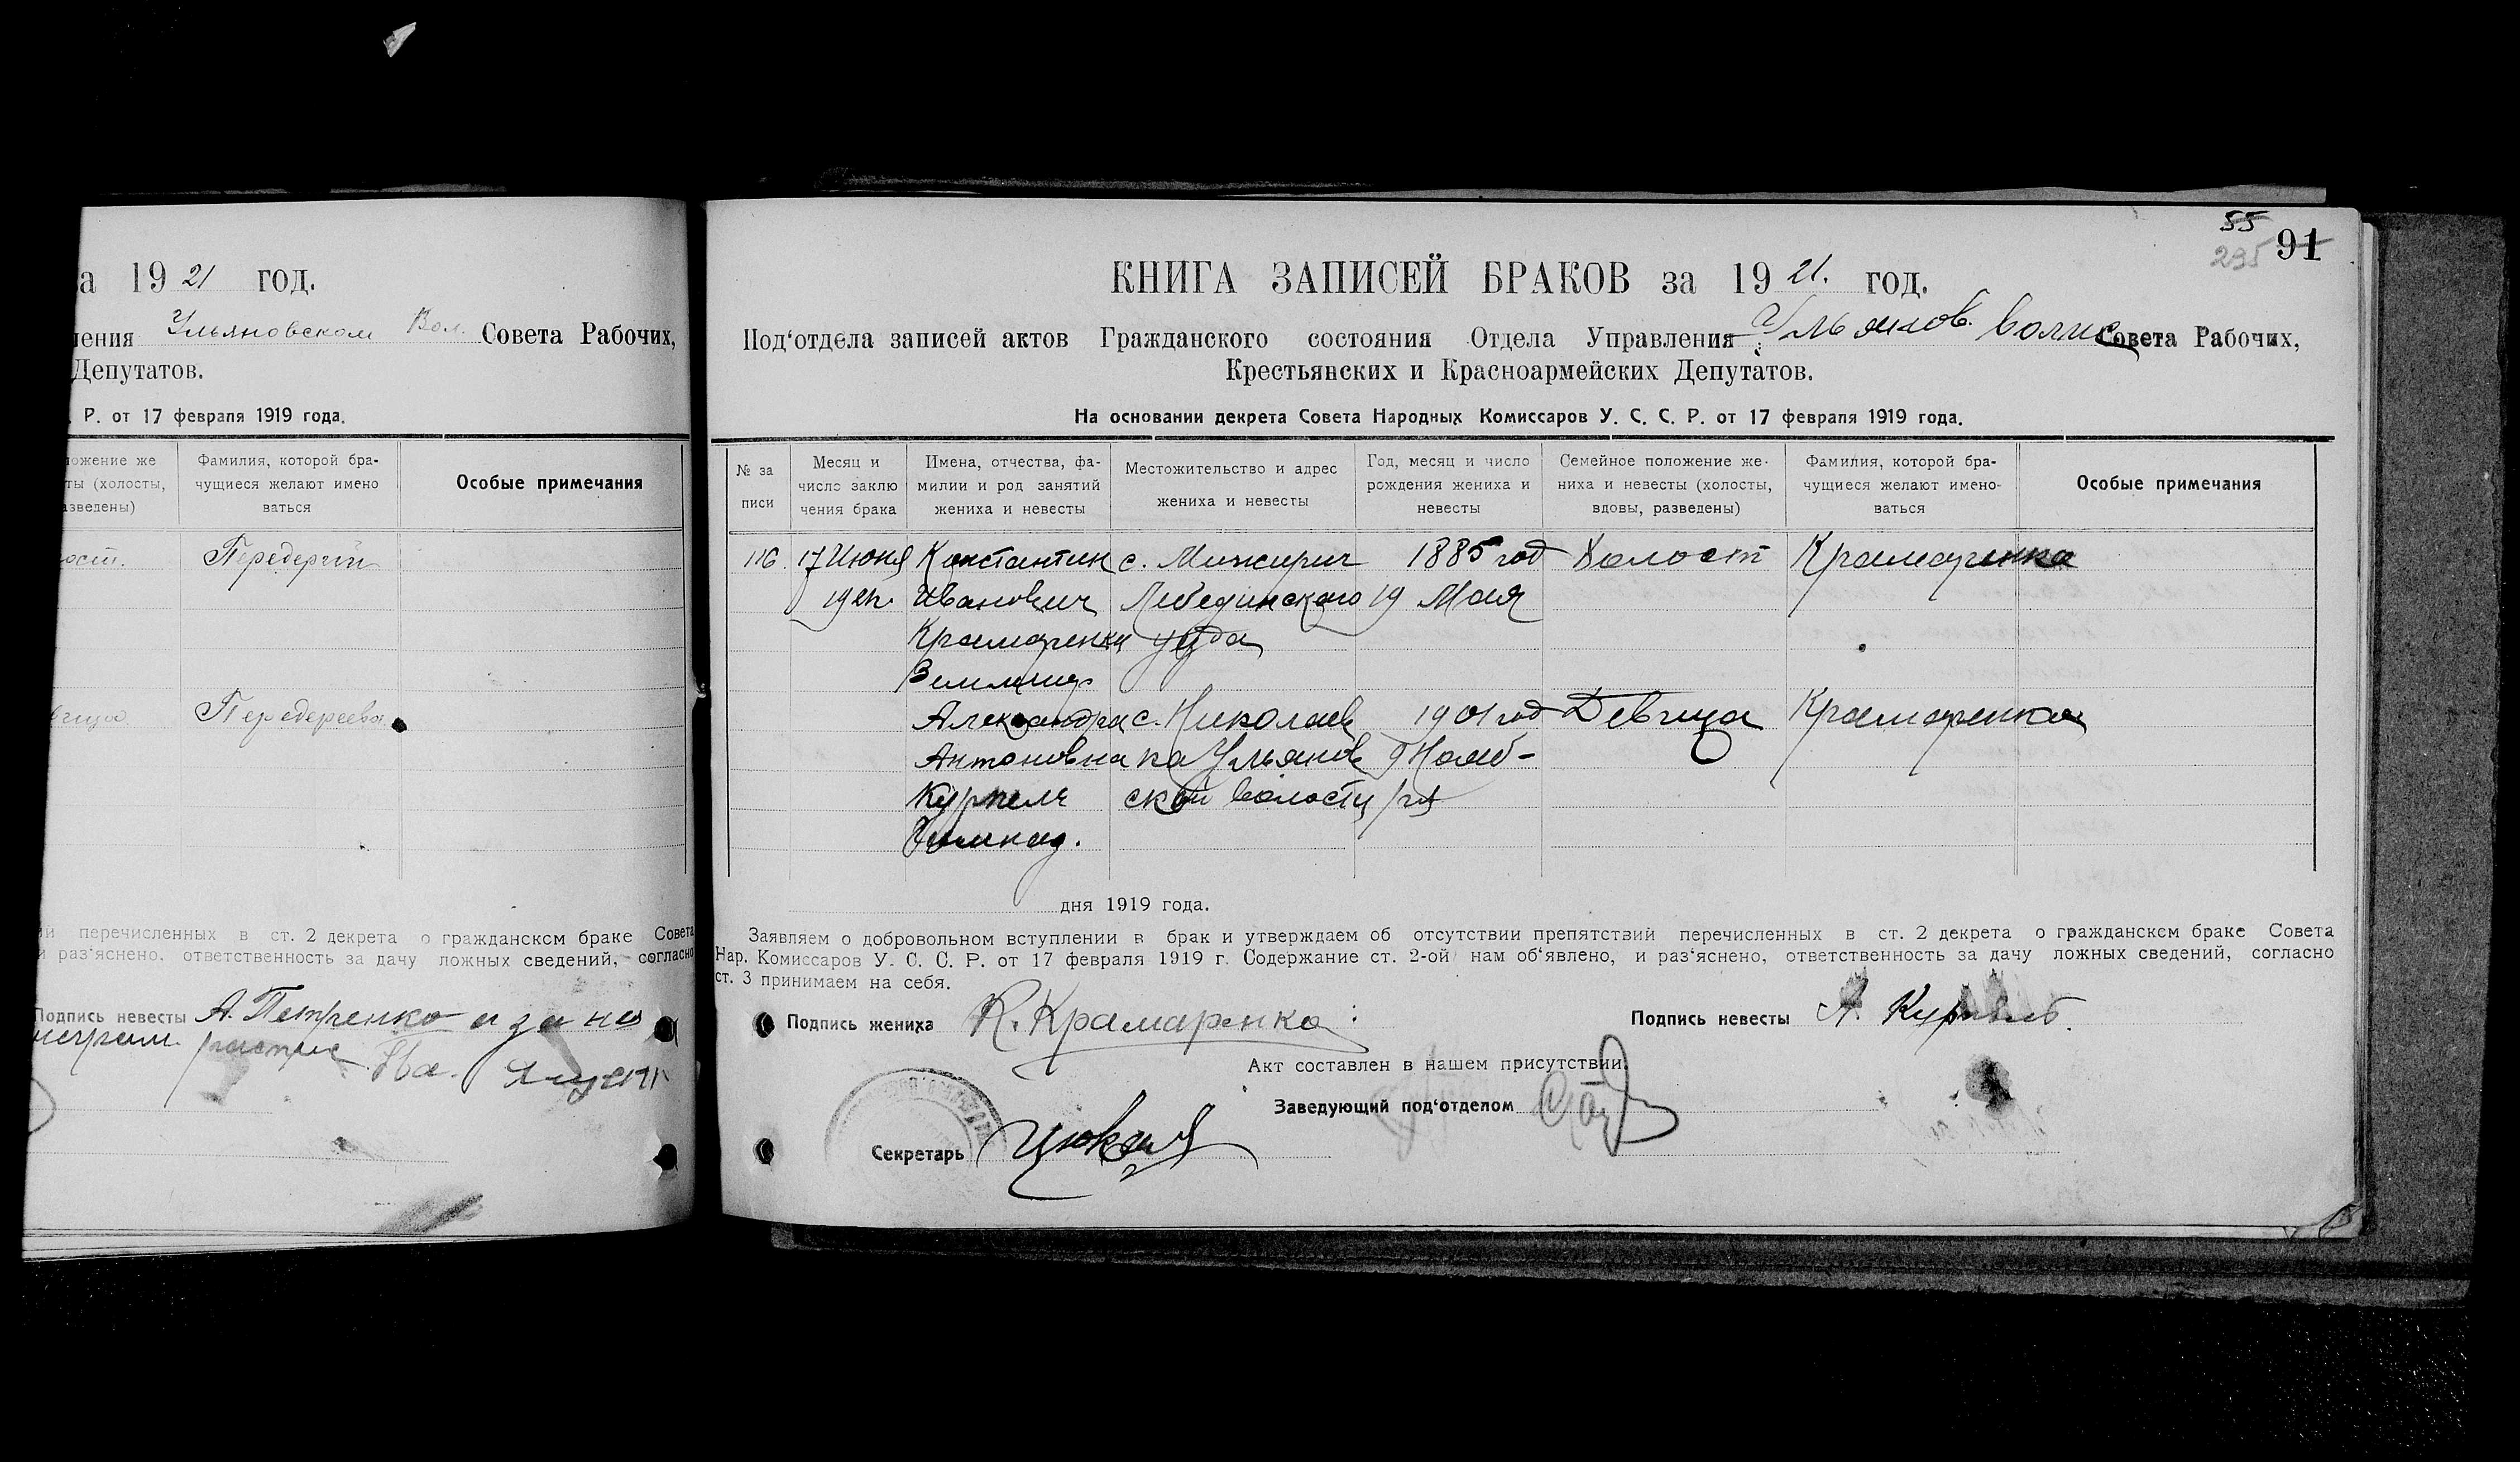 а 1921 год.
ления Ульяновском Вол. Совета Рабочих,
Депутатов.
Р. от 17 февраля 1919 года.
ложение же
ты (холосты,
азведены)
Фамилия, которой бра-
чущиеся желают имено
ваться
Особые примечания
ост. Передерий
вица. Передереева
ий перечисленных в ст. 2 декрета о гражданском браке Совета
и раз'яснено, ответственность за дачу ложных сведений, согласно
Подпись невесты А. Петренко а за не
неграм.
55
235 91
КНИГА ЗАПИСЕЙ БРАКОВ за 1921. год.
Под'отдела записей актов Гражданского состояния Отдела Управления Ульянов. Совета Рабочих,
Крестьянских и Красноармейских Депутатов.
На основании декрета Совета Народных Комиссаров У. С. С. Р. от 17 февраля 1919 года.
№ за
писи
Месяц и
число заклю
чения брака
Имена, отчества, фа-
милии и род занятий
жениха и невесты
Местожительство и адрес
жениха и невесты
Год, месяц и число
рождения жениха и
невесты
Семейное положение же-
ниха и невесты (холосты,
вдовы, разведены)
Фамилия, которой бра-
чущиеся желают имено-
ваться
Особые примечания
116. 17 Июня Константин с. Межирич 1885 год Холост Крамаренко
1921г. Иванович Лебединского 19 Мая
Крамаренко уезда
Александра с. Николаев 1901 год Девица Крамаренко
Антоновна ка Ульянов 9 Нояб-
ской волости ря
дня 1919 года.
Заявляем о добровольном вступлении в брак и утверждаем об отсутствии препятствий перечисленных в ст. 2 декрета о гражданском браке Совета
Нар. Комиссаров У. С. С. Р. от 17 февраля 1919 г. Содержание ст. 2-ой нам об'явлено, и раз'яснено, ответственность за дачу ложных сведений, согласно
ст. 3 принимаем на себя.
Подпись жениха К. Крамаренко Подпись невесты А.
Акт составлен в нашем присутствии:
Заведующий под'отделом
Секретарь